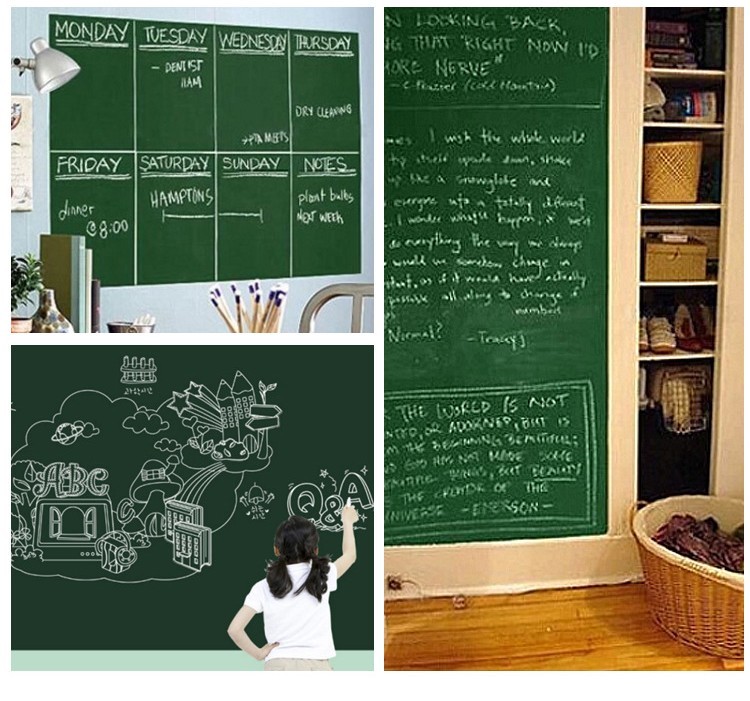 MONDAY
TUESDAY
WEDNESDAY
THURSDAY
- DENTIST
11AM
DRY CLEANING
*PTA MEETS
FRIDAY
SATURDAY
SUNDAY
NOTES
dinner
@8:00
HAMPTONS
plant bulbs
NEXT WEEK
N LOOKING BACK,
NG THAT RIGHT NOW I'D
MORE NERVE"
-C. Frazier (Cold Mountain)
I wish the whole world
itself upside down, shake
up like a snowglobe and
everyone into a totally different
I wonder what'd happen, if we'd
do everything the way we always
would we somehow change in
that, as if it would have actually
possible all along to change if
numbers
Normal? - Tracy J
THE WORLD IS NOT
OR ADORNED, BUT IS
THE BEGINNING BEAUTIFUL;
GOD HAS NOT MADE SOME
THINGS, BUT BEAUTY
THE CREATOR OF THE
UNIVERSE - EMERSON -
ABC
Q&A